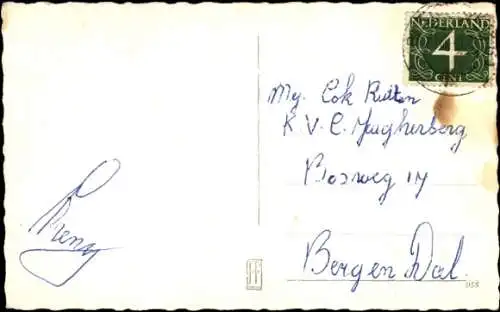 NEDERLAND
4
CENT
Mej. Cok Rutten
K. V. C. Meygherberg
Bosweg 14
Bergen Dal.
Rieny